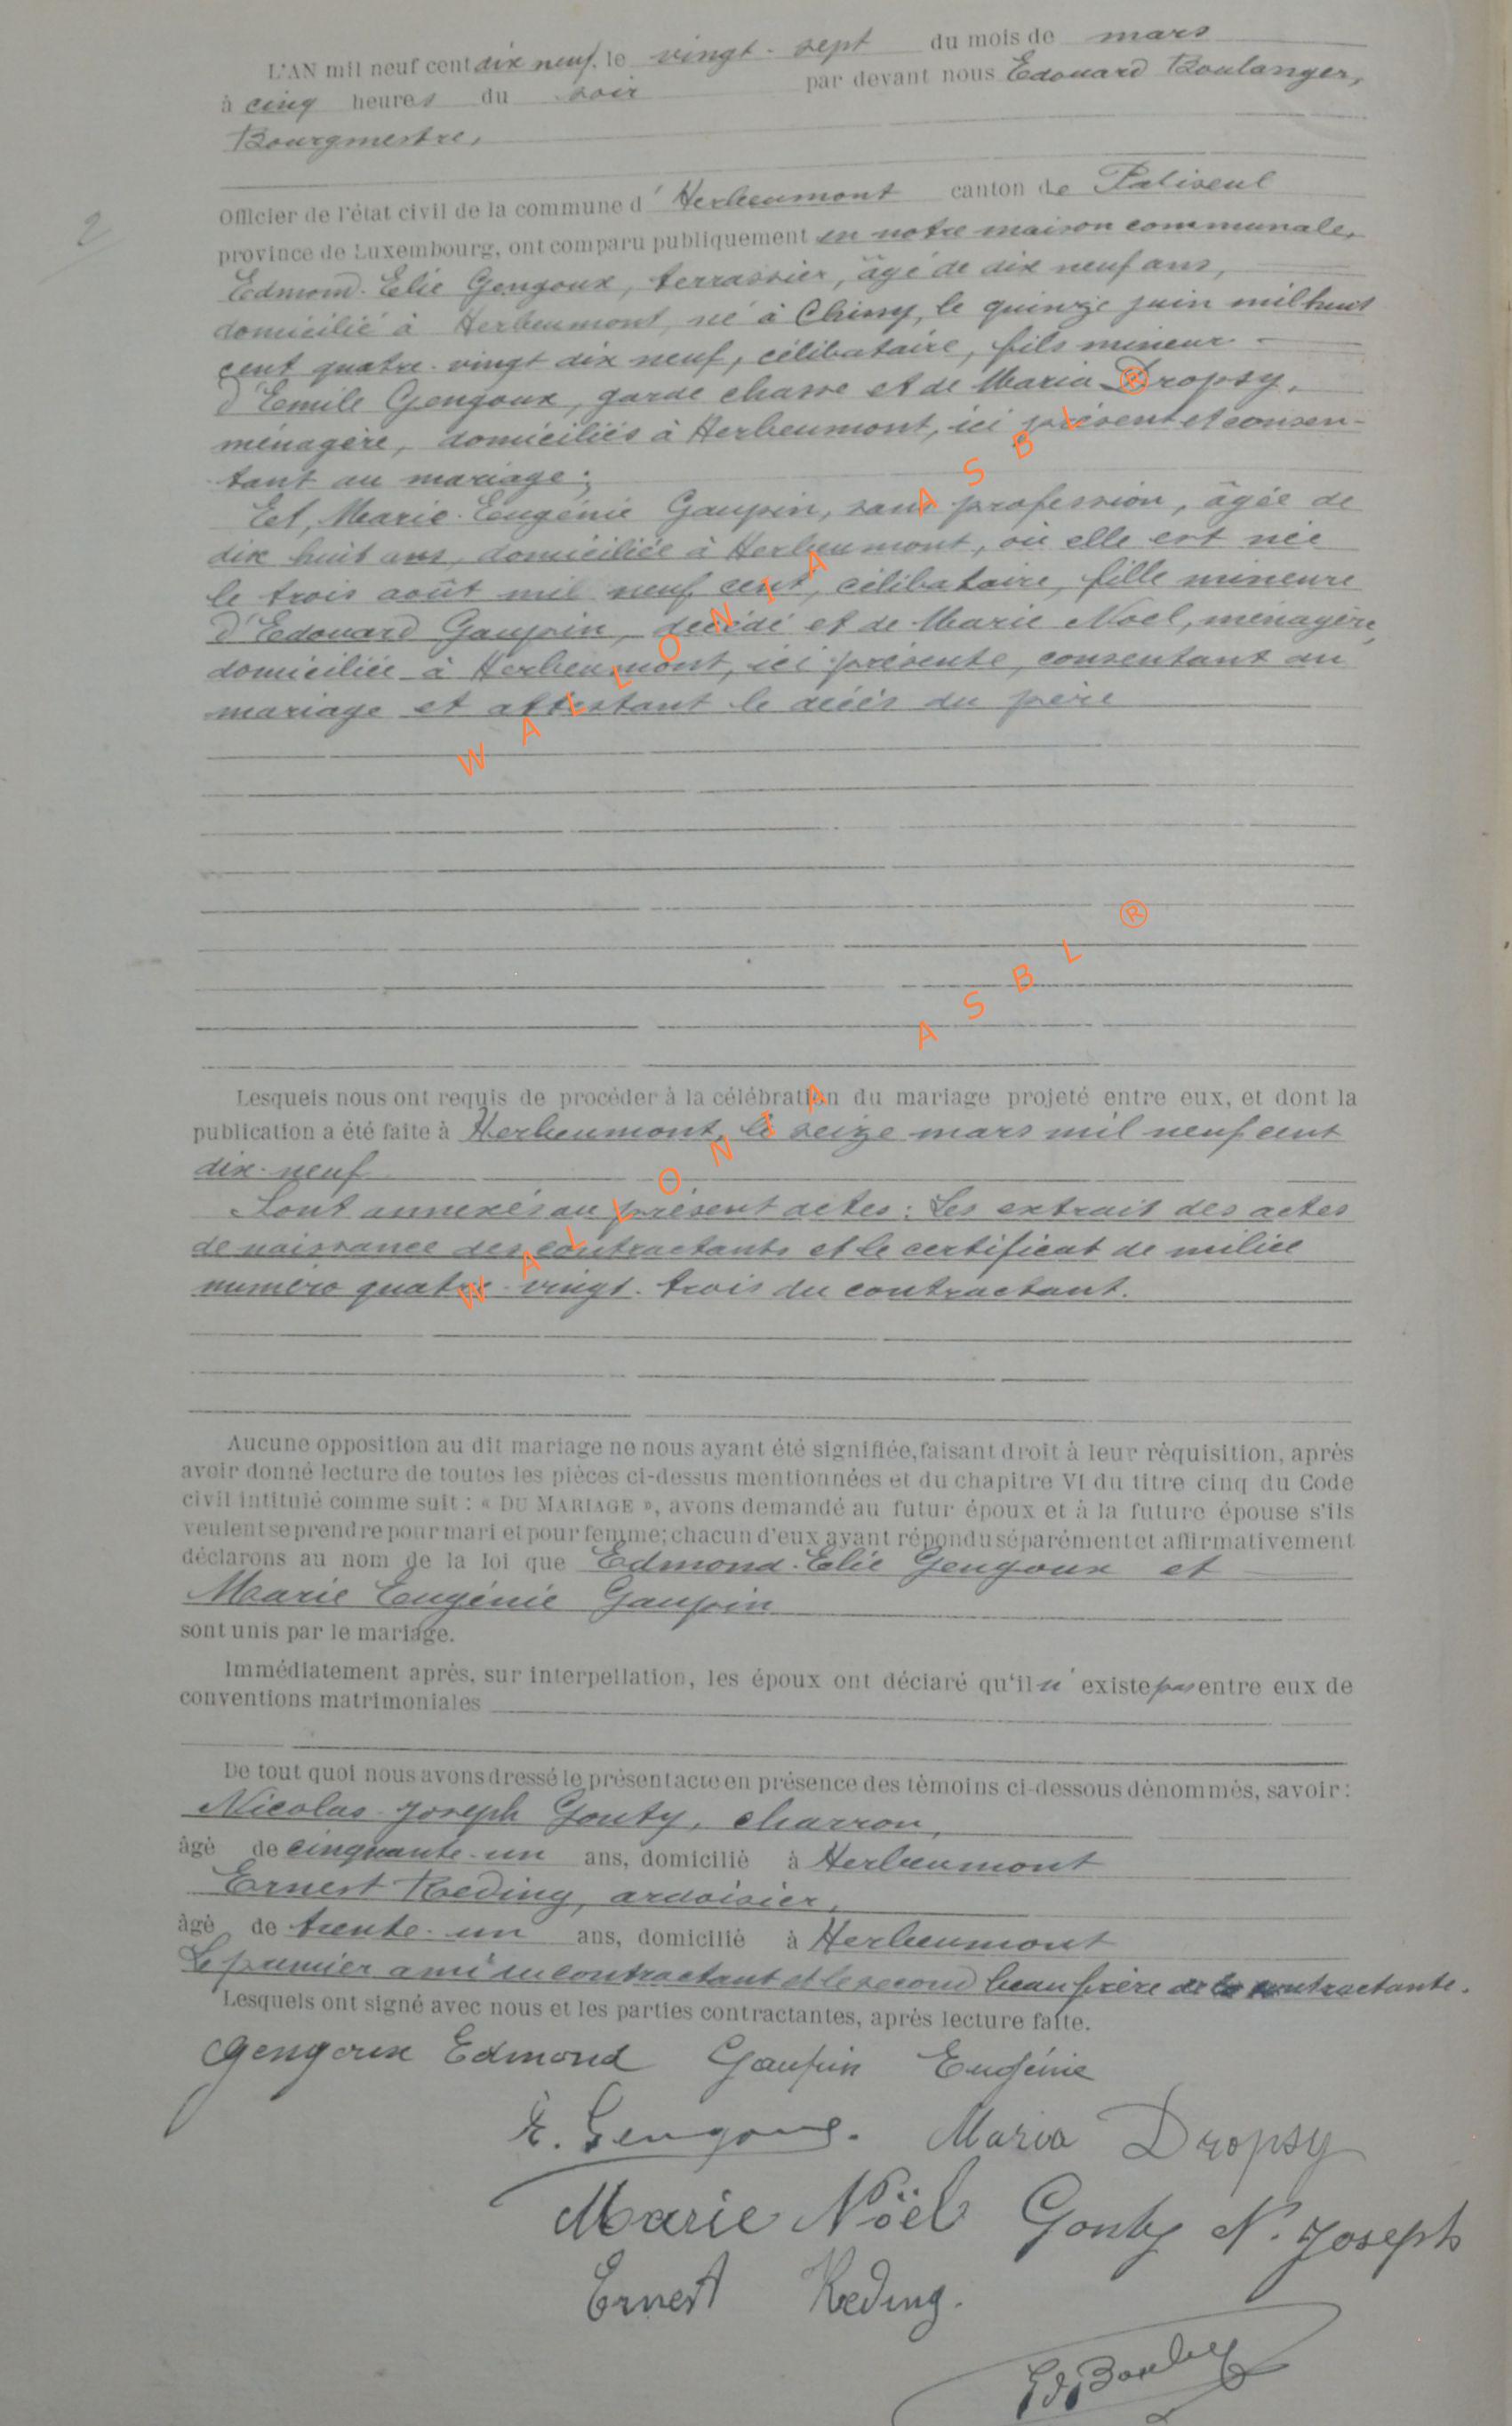 L'AN mil neuf cent dix neuf, le vingt-sept du mois de mars
à cinq heures du soir par devant nous Edouard Boulanger,
Bourgmestre,
Officier de l'état civil de la commune d' Herbeumont canton de Paliseul
2
province de Luxembourg, ont comparu publiquement en notre maison communale,
Edmond-Elie Gengoux, terrassier, âgé de dix neuf ans,
domicilié à Herbeumont, né à Chiny, le quinze juin mil huit
cent quatre-vingt dix neuf, célibataire, fils mineur
d'Emile Gengoux, garde chasse et de Maria Dropsy,
ménagère, domiciliés à Herbeumont, ici présent et consen-
tant au mariage;
Et, Marie-Eugénie Gaupin, sans profession, âgée de
dix huit ans, domiciliée à Herbeumont, où elle est née
le trois août mil neuf cent, célibataire, fille mineure
d'Edouard Gaupin, décédé et de Marie Noel, ménagère,
domiciliée à Herbeumont, ici présente, consentant au
mariage et attestant le décès du père
WALLONIA ASBL ®
Lesquels nous ont requis de procéder à la célébration du mariage projeté entre eux, et dont la
publication a été faite à Herbeumont, le seize mars mil neuf cent
dix-neuf
Sont annexés au présent actes: Les extrait des actes
de naissance des contractants et le certificat de milice
numéro quatre-vingt-trois du contractant.
WALLONIA ASBL ®
Aucune opposition au dit mariage ne nous ayant été signifiée, faisant droit à leur réquisition, après
avoir donné lecture de toutes les pièces ci-dessus mentionnées et du chapitre VI du titre cinq du Code
civil intitulé comme suit : « DU MARIAGE », avons demandé au futur époux et à la future épouse s'ils
veulent se prendre pour mari et pour femme; chacun d'eux ayant répondu séparément et affirmativement
déclarons au nom de la loi que Edmond-Elie Gengoux et
Marie Eugénie Gaupin
sont unis par le mariage.
Immédiatement après, sur interpellation, les époux ont déclaré qu'il n' existe pas entre eux de
conventions matrimoniales
De tout quoi nous avons dressé le présent acte en présence des témoins ci-dessous dénommés, savoir :
Nicolas-Joseph Gouty, charron,
âgé de cinquante-un ans, domicilié à Herbeumont
Ernest Reding, ardoisier,
âgé de trente-un ans, domicilié à Herbeumont
Le premier ami du contractant et le second beau frère de la contractante.
Lesquels ont signé avec nous et les parties contractantes, après lecture faite.
Gengoux Edmond Gaupin Eugénie
E. Gengoux. Maria Dropsy
Marie Nöel Gouty N. Joseph
Ernest Reding.